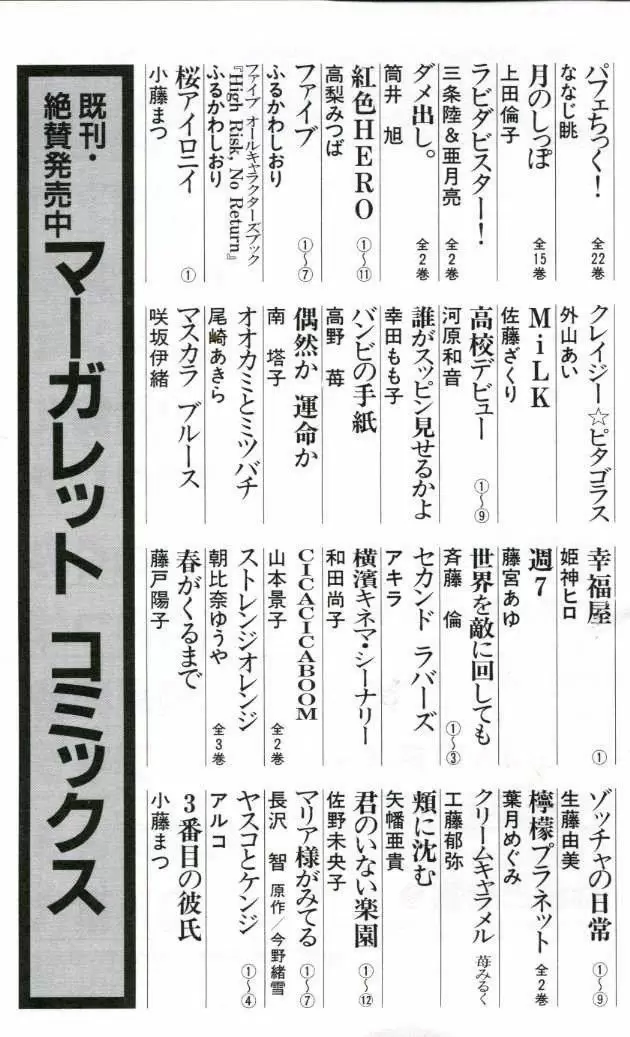 パフェちっく！
全22巻
ななじ眺
月のしっぽ
全15巻
上田倫子
ラビダビスター！
全2巻
三条陸&亜月亮
ダメ出し。
全2巻
筒井　旭
紅色HERO
①〜⑪
高梨みつば
ファイブ
①〜⑦
ふるかわしおり
ファイブ オールキャラクターズブック
『High Risk, No Return』
ふるかわしおり
桜アイロニイ
①
小藤まつ
クレイジー☆ピタゴラス
外山あい
MiLK
佐藤ざくり
高校デビュー
①〜⑨
河原和音
誰がスッピン見せるかよ
幸田もも子
バンビの手紙
高野　苺
偶然か 運命か
南　塔子
オオカミとミツバチ
尾崎あきら
マスカラ ブルース
咲坂伊緒
幸福屋
①
姫神ヒロ
週7
藤宮あゆ
世界を敵に回しても
①〜③
斉藤　倫
セカンド ラバーズ
アキラ
横濱キネマ・シーナリー
和田尚子
CICACICABOOM
全2巻
山本景子
ストレンジオレンジ
全3巻
朝比奈ゆうや
春がくるまで
藤戸陽子
ゾッチャの日常
①〜⑨
生藤由美
檸檬プラネット
全2巻
葉月めぐみ
クリームキャラメル
苺みるく
工藤郁弥
頬に沈む
矢幡亜貴
君のいない楽園
①〜⑫
佐野未央子
マリア様がみてる
①〜⑦
長沢　智 原作／今野緒雪
ヤスコとケンジ
①〜④
アルコ
3番目の彼氏
小藤まつ
既刊・
絶賛発売中
マーガレット コミックス